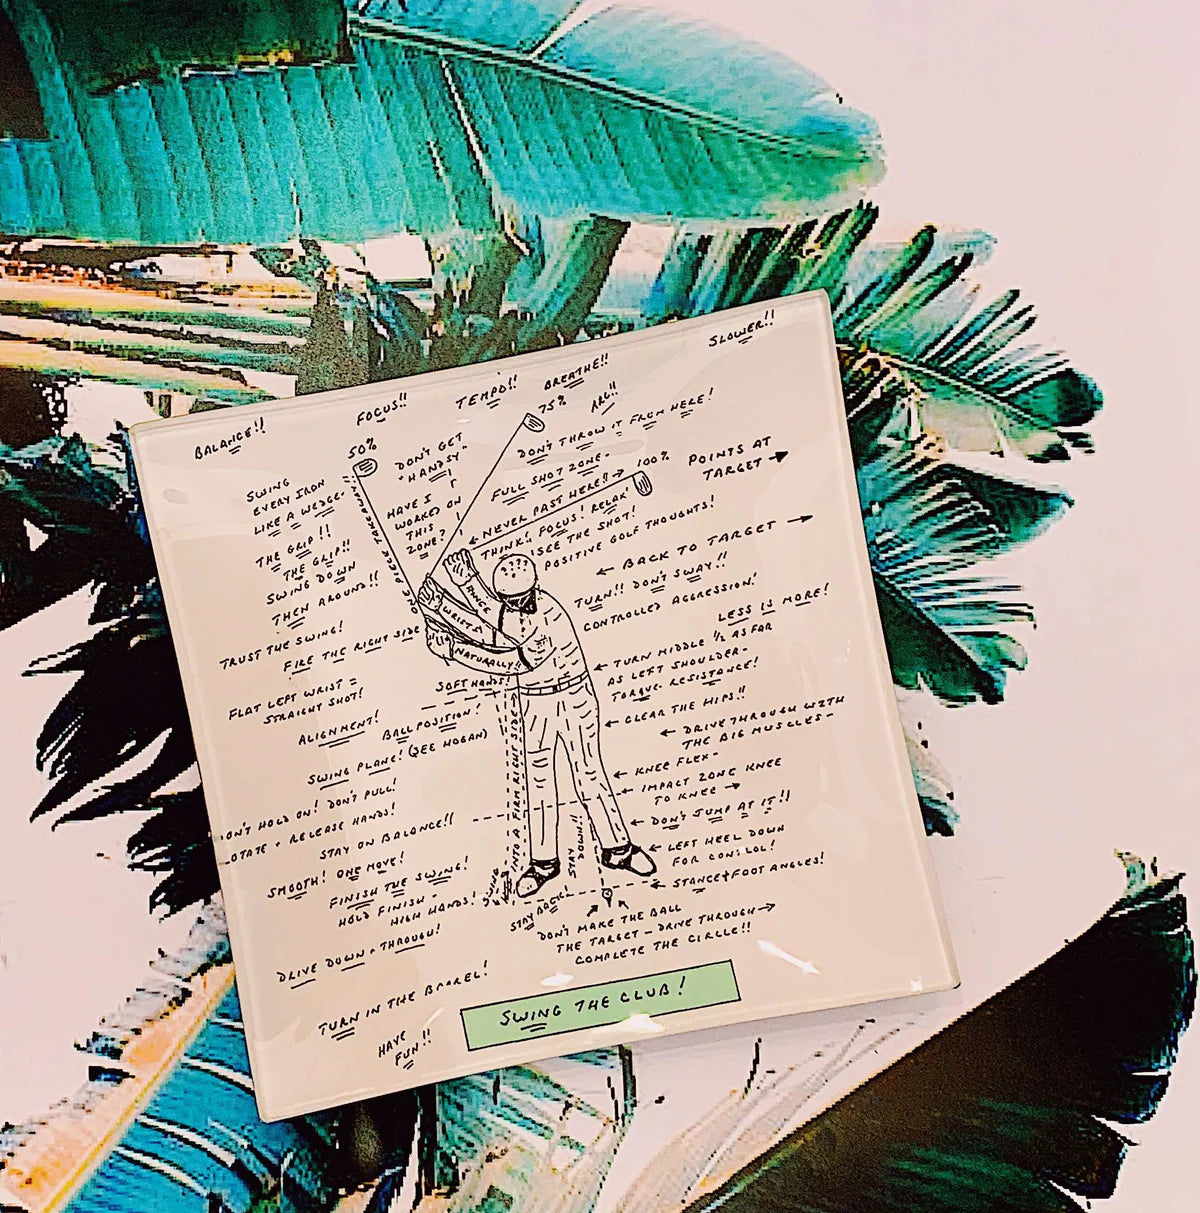 BALANCE!!
FOCUS!!
TEMPO!!
BREATHE!!
SLOWER!!
50%
75%
ARC!!
100%
SWING
EVERY IRON
LIKE A WEDGE-
THE GRIP!!
THE GRIP!!
SWING DOWN
THEN AROUND!!
TRUST THE SWING!
FIRE THE RIGHT SIDE
FLAT LEFT WRIST =
STRAIGHT SHOT!
ALIGNMENT!
BALL POSITION!
(SEE HOGAN)
SWING PLANE!
ON'T HOLD ON! DON'T PULL!
OTATE + RELEASE HANDS!
STAY ON BALANCE!!
SMOOTH! ONE MOVE!
FINISH THE SWING!
HOLD FINISH -
HIGH HANDS!
DRIVE DOWN + THROUGH!
TURN IN THE BARREL!
HAVE
FUN!!
ONE PIECE TAKEAWAY!!
DON'T GET
"HANDSY"
HAVE I
WORKED ON
THIS
ZONE?
DON'T THROW IT FROM HERE!
FULL SHOT ZONE-
NEVER PAST HERE!!
THINK! FOCUS! RELAX
SEE THE SHOT!
POSITIVE GOLF THOUGHTS!
POINTS AT
TARGET
BACK TO TARGET
TURN!! DON'T SWAY!!
CONTROLLED AGGRESSION!
LESS IS MORE!
TURN MIDDLE 1/2 AS FAR
AS LEFT SHOULDER-
TORQUE- RESISTANCE!
CLEAR THE HIPS!!
DRIVE THROUGH WITH
THE BIG MUSCLES-
KNEE FLEX-
IMPACT ZONE KNEE
TO KNEE
DON'T JUMP AT IT!!
LEFT HEEL DOWN
FOR CONTROL!
STANCE + FOOT ANGLES!
???
HINGE
WRISTS
NATURALLY!!
SOFT HANDS!
SWING
INTO A FIRM RIGHT SIDE
STAY
DOWN!!
STAY BACK!
DON'T MAKE THE BALL
THE TARGET - DRIVE THROUGH
COMPLETE THE CIRCLE!!
SWING THE CLUB!